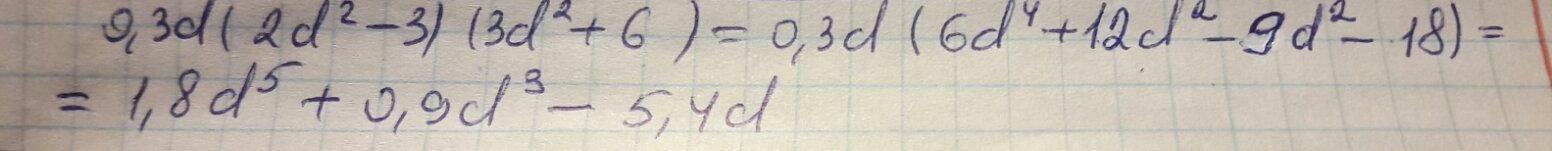 0,3d(2d² - 3)(3d² + 6) = 0,3d(6d⁴ + 12d² - 9d² - 18) =
= 1,8d⁵ + 0,9d³ - 5,4d